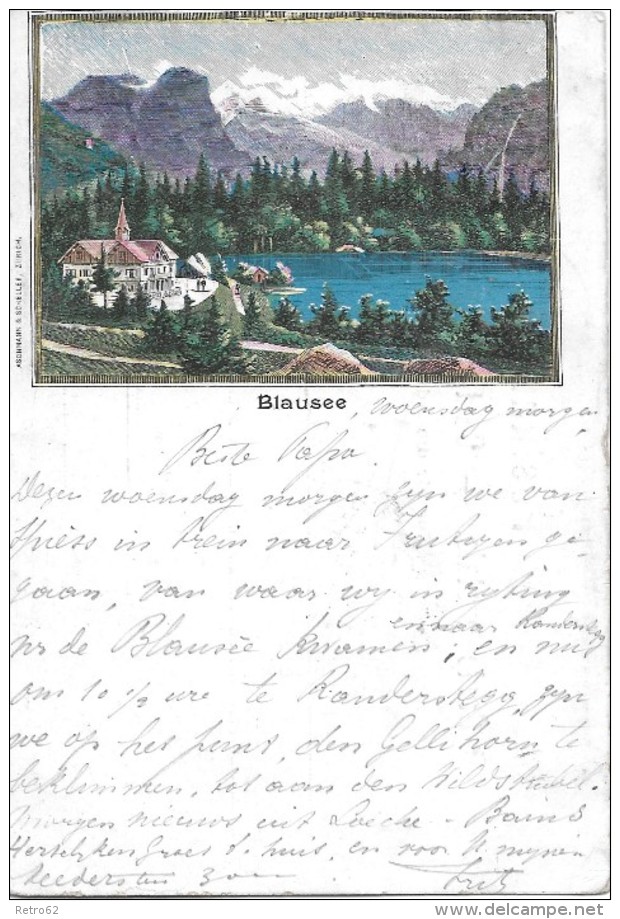 ASCHMANN & SCHELLER, ZÜRICH.
Blausee, woensdag morgen
Beste Papa.
Dezen woensdag morgen zyn we van
Spièz in trein naar Frutigen ge-
gaan, van waar wy in ryting
de Blausée kwamen; en naar Kandersteg
om 10 1/2 ure te Kanderstegg, zyn
we op het punt, den Gellihorn te
beklimmen, tot aan den Wildstrubel.
Morgen nieuws uit Loèche-Bains
Hertelyken Groet t. huis, en voor U myn
teedersten zoen
Fritz
Retro62
DELCAMPE.NET